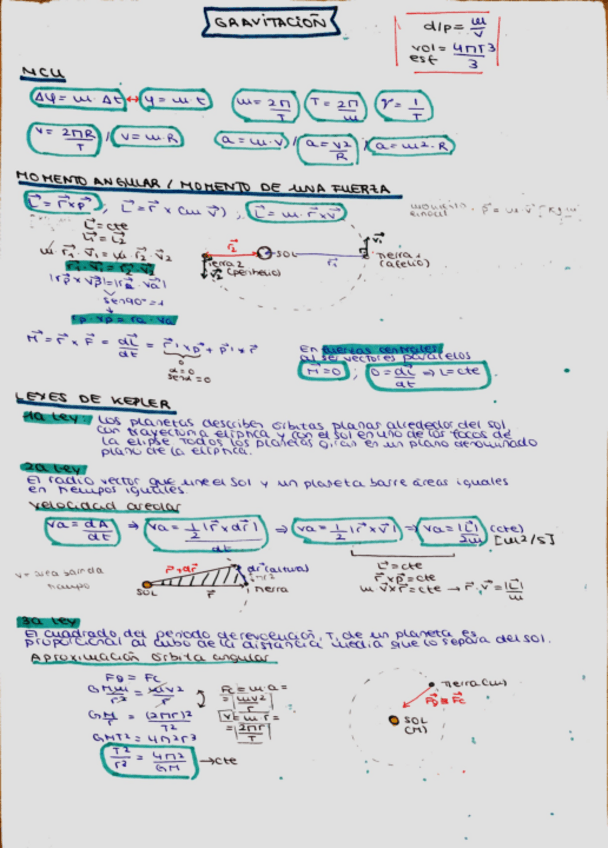 GRAVITACIÓN
d/p = m/v
vol esf = 4πr³/3
MCU
Δφ = ω · Δt ↔ φ = ω · t
ω = 2π/T
T = 2π/ω
γ = 1/T
v = 2πR/T / v = ω · R
a = ω · v / a = v²/R / a = ω² · R
MOMENTO ANGULAR / MOMENTO DE UNA FUERZA
L⃗ = r⃗ x p⃗ ; L⃗ = r⃗ x (m v⃗) ; L⃗ = m · r⃗ x v⃗
p⃗ = m · v⃗
L⃗ = cte
L⃗₁ = L⃗₂
m r⃗₁ · v⃗₁ = m · r⃗₂ · v⃗₂
r⃗₁ · v⃗₁ = r⃗₂ · v⃗₂
|r⃗p x v⃗p| = |r⃗a · v⃗a|
sen 90° = 1
rp · vp = ra · va
r⃗₂
SOL
r⃗₁
v⃗₁
Tierra 1 (afelio)
Tierra 2
v⃗₂ (perihelio)
M⃗ = r⃗ x F⃗ = dL⃗/dt = r⃗' x p⃗ + p⃗' x r⃗
0
α = 0
sen α = 0
En fuerzas centrales
al ser vectores paralelos
M⃗ = 0 ; 0 = dL⃗/dt ⇒ L = cte
LEYES DE KEPLER
1a Ley: Los planetas describen órbitas planas alrededor del sol
con trayectoria elíptica y con el sol en uno de los focos de
la elipse. Todos los planetas giran en un plano denominado
plano de la elíptica.
2a Ley
El radio vector que une el Sol y un planeta barre áreas iguales
en tiempos iguales.
Velocidad areolar
va = dA/dt ⇒ va = 1/2 |r⃗ x dr⃗|/dt ⇒ va = 1/2 |r⃗ x v⃗| ⇒ va = |L⃗|/2m (cte)
[m²/s]
v = área barrida
tiempo
r⃗ + dr⃗
dr⃗ (altura)
r⃗
SOL
Tierra
L⃗ = cte
r⃗ x p⃗ = cte
m v⃗ x r⃗ = cte → r⃗ · v⃗ = |L⃗|/m
3a Ley
El cuadrado del periodo de revolución, T, de un planeta es
proporcional al cubo de la distancia media que lo separa del sol.
Aproximación órbita angular
Fg = Fc
GMm/r² = mv²/r
GM/r = (2πr)²/T²
GMT² = 4π²r³
T²/r³ = 4π²/GM → cte
Fc = m · a =
= mv²/r
v = ω · r =
= 2πr/T
Tierra (m)
F⃗g = F⃗c
SOL
(M)